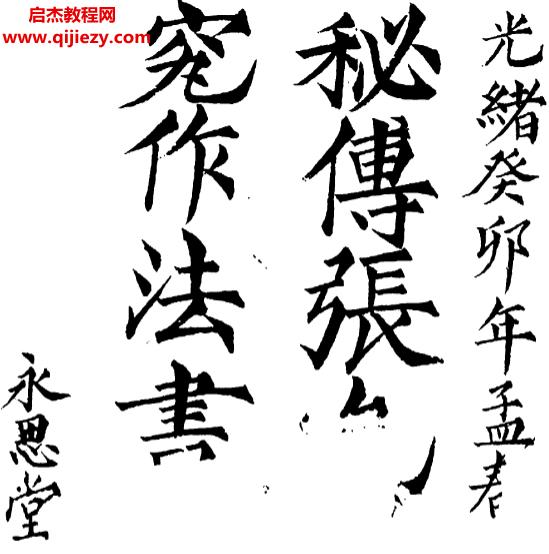 启杰教程网
www.qijiezy.com
光緒癸卯年孟春
秘傳張
究作法書
永思堂